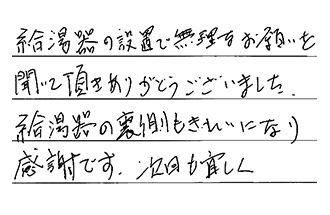 給湯器の設置で無理なお願いを
聞いて頂きありがとうございました.
給湯器の裏側もきれいになり
感謝です. 次回も宜しく